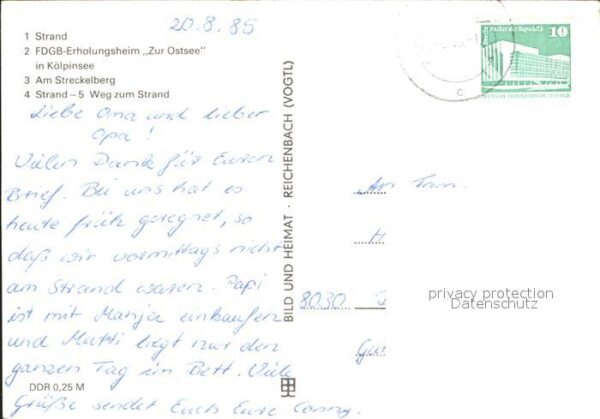 20.8.85
1 Strand
2 FDGB-Erholungsheim „Zur Ostsee"
in Kölpinsee
3 Am Streckelberg
4 Strand – 5 Weg zum Strand
Liebe Oma und lieber
Opa!
Vielen Dank für Euren
Brief. Bei uns hat es
heute früh geregnet, so
daß wir vormittags nicht
am Strand waren. Papi
ist mit Manja einkaufen
und Mutti liegt nur den
ganzen Tag im Bett. Viele
Grüße sendet Euch Eure
DDR 0,25 M
BILD UND HEIMAT · REICHENBACH (VOGTL)
Berlin, Palast der Republik
10
DEUTSCHE DEMOKRATISCHE REPUBLIK
An Fam.
H
8030
privacy protection
Datenschutz